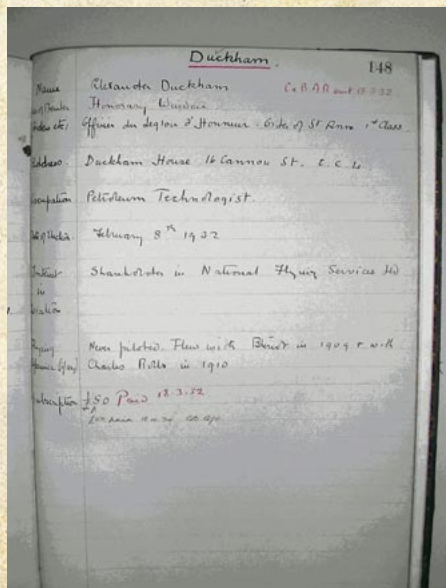 Duckham.
148
Name Alexander Duckham C & B A R sent 18.3.32
Honorary Warden
Officier du Legion d'Honneur. Order of St Anne 1st Class.
Address. Duckham House 16 Cannon St. E.C.4
Occupation Petroleum Technologist.
February 8th 1932
Interest Shareholder in National Flying Services Ltd
in
Aviation
Flying Never piloted. Flew with Bleriot in 1909 & with
Charles Rolls in 1910
Subscription £50 Paid 18.3.32